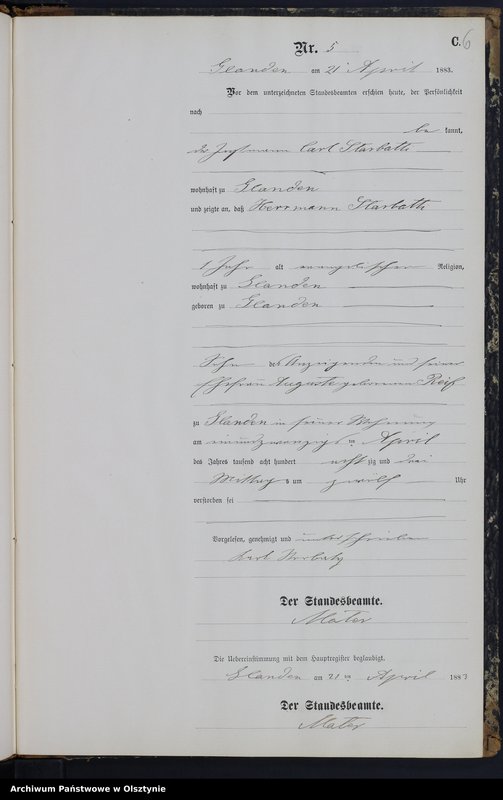 C. 6
Nr. 5
Glanden am 21 April 1883.
Vor dem unterzeichneten Standesbeamten erschien heute, der Persönlichkeit
nach
be kannt,
der Carl Starbatti
wohnhaft zu Glanden
und zeigte an, daß Herrmann Starbatti
1 Jahr alt evangelischer Religion,
wohnhaft zu Glanden
geboren zu Glanden
Sohn des Anzeigenden und seiner
Ehefrau Auguste geborenen Reiß
zu Glanden in seiner Wohnung
am einundzwanzigsten April
des Jahres tausend acht hundert acht zig und drei
Mittags um zwölf Uhr
verstorben sei
Vorgelesen, genehmigt und unterschrieben
Karl
Der Standesbeamte.
Mater
Die Uebereinstimmung mit dem Hauptregister beglaubigt.
Glanden am 21 ten April 1883
Der Standesbeamte.
Mater
Archiwum Państwowe w Olsztynie